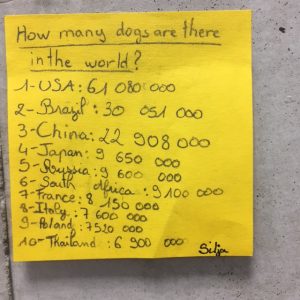 How many dogs are there
in the world?
1-USA: 61 080 000
2-Brazil: 30 051 000
3-China: 22 908 000
4-Japan: 9 650 000
5-Russia: 9 600 000
6-South Africa: 9 100 000
7-France: 8 150 000
8-Italy: 7 600 000
9-Poland: 7520 000
10-Thailand: 6 900 000
Silja